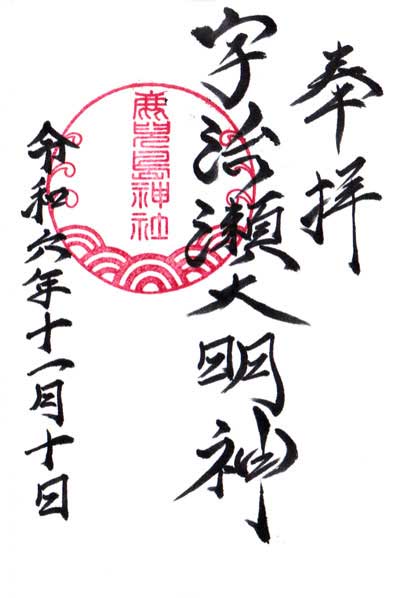 奉拝
宇治瀬大明神
鹿児島神社
令和六年十一月十日